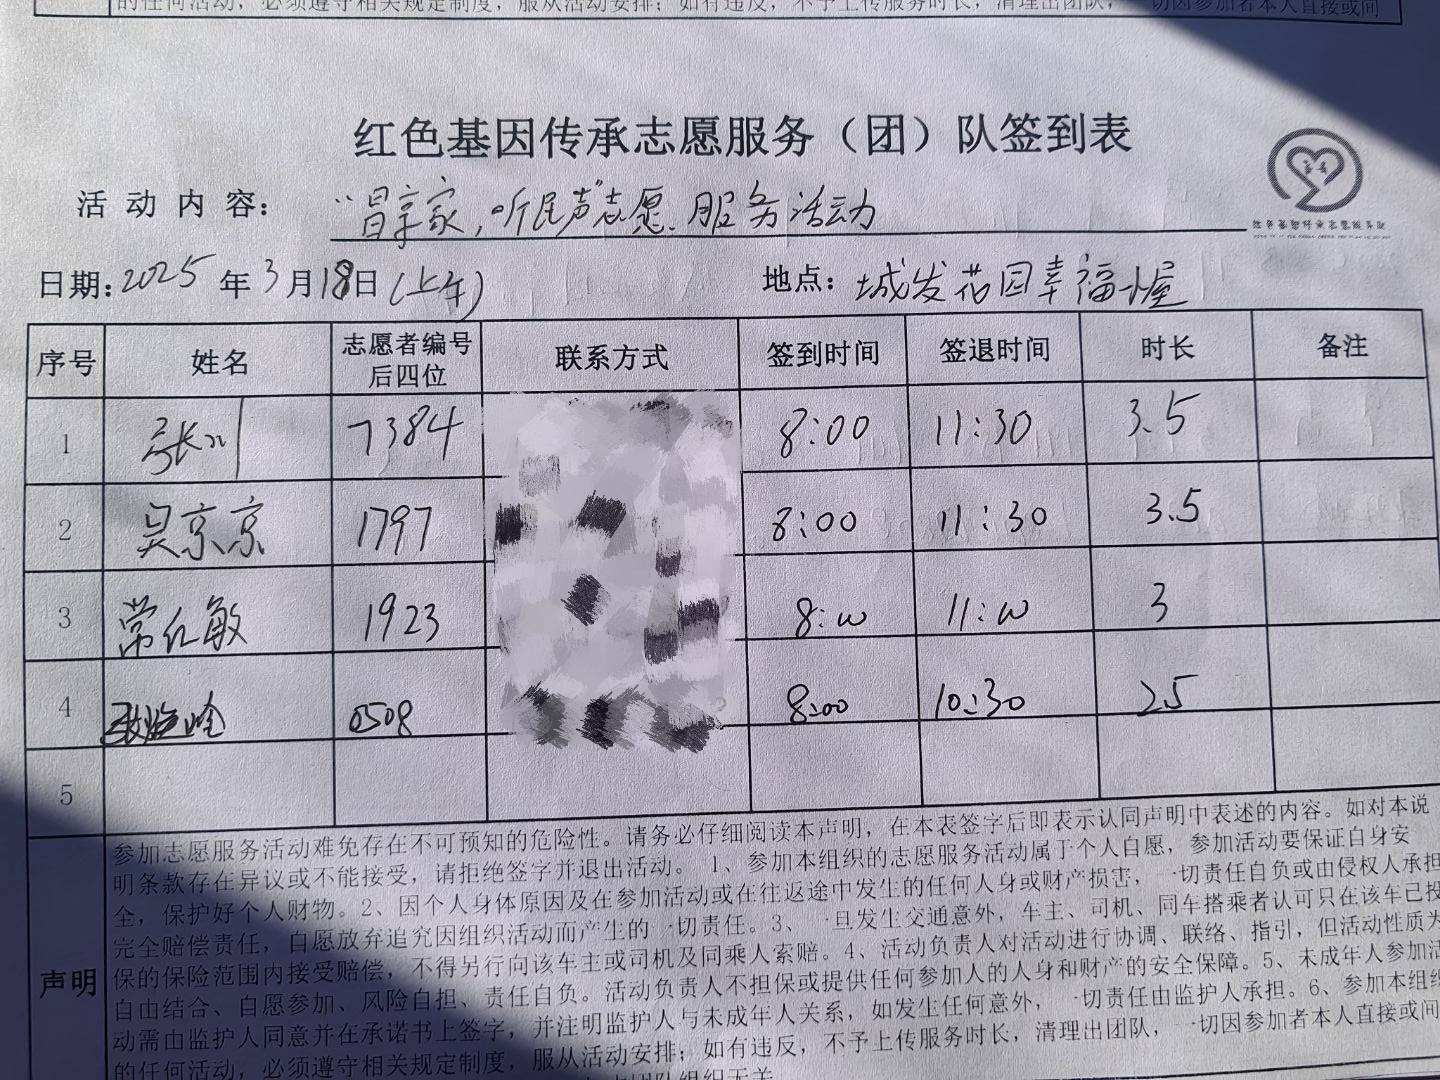 的任何活动，必须遵守相关规定制度，服从活动安排；如有违反，不予上传服务时长，清理出团队，一切因参加者本人直接或间
红色基因传承志愿服务（团）队签到表
活动内容： “冒享家，听民声”志愿服务活动
日期：2025年3月18日（上午） 地点：城发花园幸福小屋
序号 姓名 志愿者编号后四位 联系方式 签到时间 签退时间 时长 备注
1 张川 7384 8:00 11:30 3.5
2 吴京京 1797 8:00 11:30 3.5
3 常仁敏 1923 8:00 11:00 3
4 0508 8:00 10:30 2.5
5
声明
参加志愿服务活动难免存在不可预知的危险性。请务必仔细阅读本声明，在本表签字后即表示认同声明中表述的内容。如对本说
明条款存在异议或不能接受，请拒绝签字并退出活动。1、参加本组织的志愿服务活动属于个人自愿，参加活动要保证自身安
全，保护好个人财物。2、因个人身体原因及在参加活动或在往返途中发生的任何人身或财产损害，一切责任自负或由侵权人承担
完全赔偿责任，自愿放弃追究因组织活动而产生的一切责任。3、一旦发生交通意外，车主、司机、同车搭乘者认可只在该车已投
保的保险范围内接受赔偿，不得另行向该车主或司机及同乘人索赔。4、活动负责人对活动进行协调、联络、指引，但活动性质为
自由结合、自愿参加、风险自担、责任自负。活动负责人不担保或提供任何参加人的人身和财产的安全保障。5、未成年人参加活
动需由监护人同意并在承诺书上签字，并注明监护人与未成年人关系，如发生任何意外，一切责任由监护人承担。6、参加本组织
的任何活动，必须遵守相关规定制度，服从活动安排；如有违反，不予上传服务时长，清理出团队，一切因参加者本人直接或间
团队组织无关